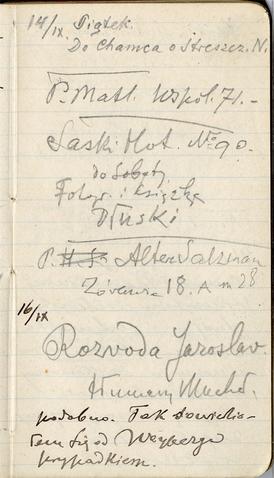 14/IX. Piątek.
Do Chamca o Streszcz. N.
P. Matl. Wspól. 71.-
Saski Hot. No 90.
do Soboty
Fotogr. i książkę
Dłuski
P. Alter Salzman
18. A m 28
16/IX
Rozvoda Jaroslav.
Tłumacz Mucho.
podobno. Tak dowiedzia-
łem się od Weyberga
przypadkiem.